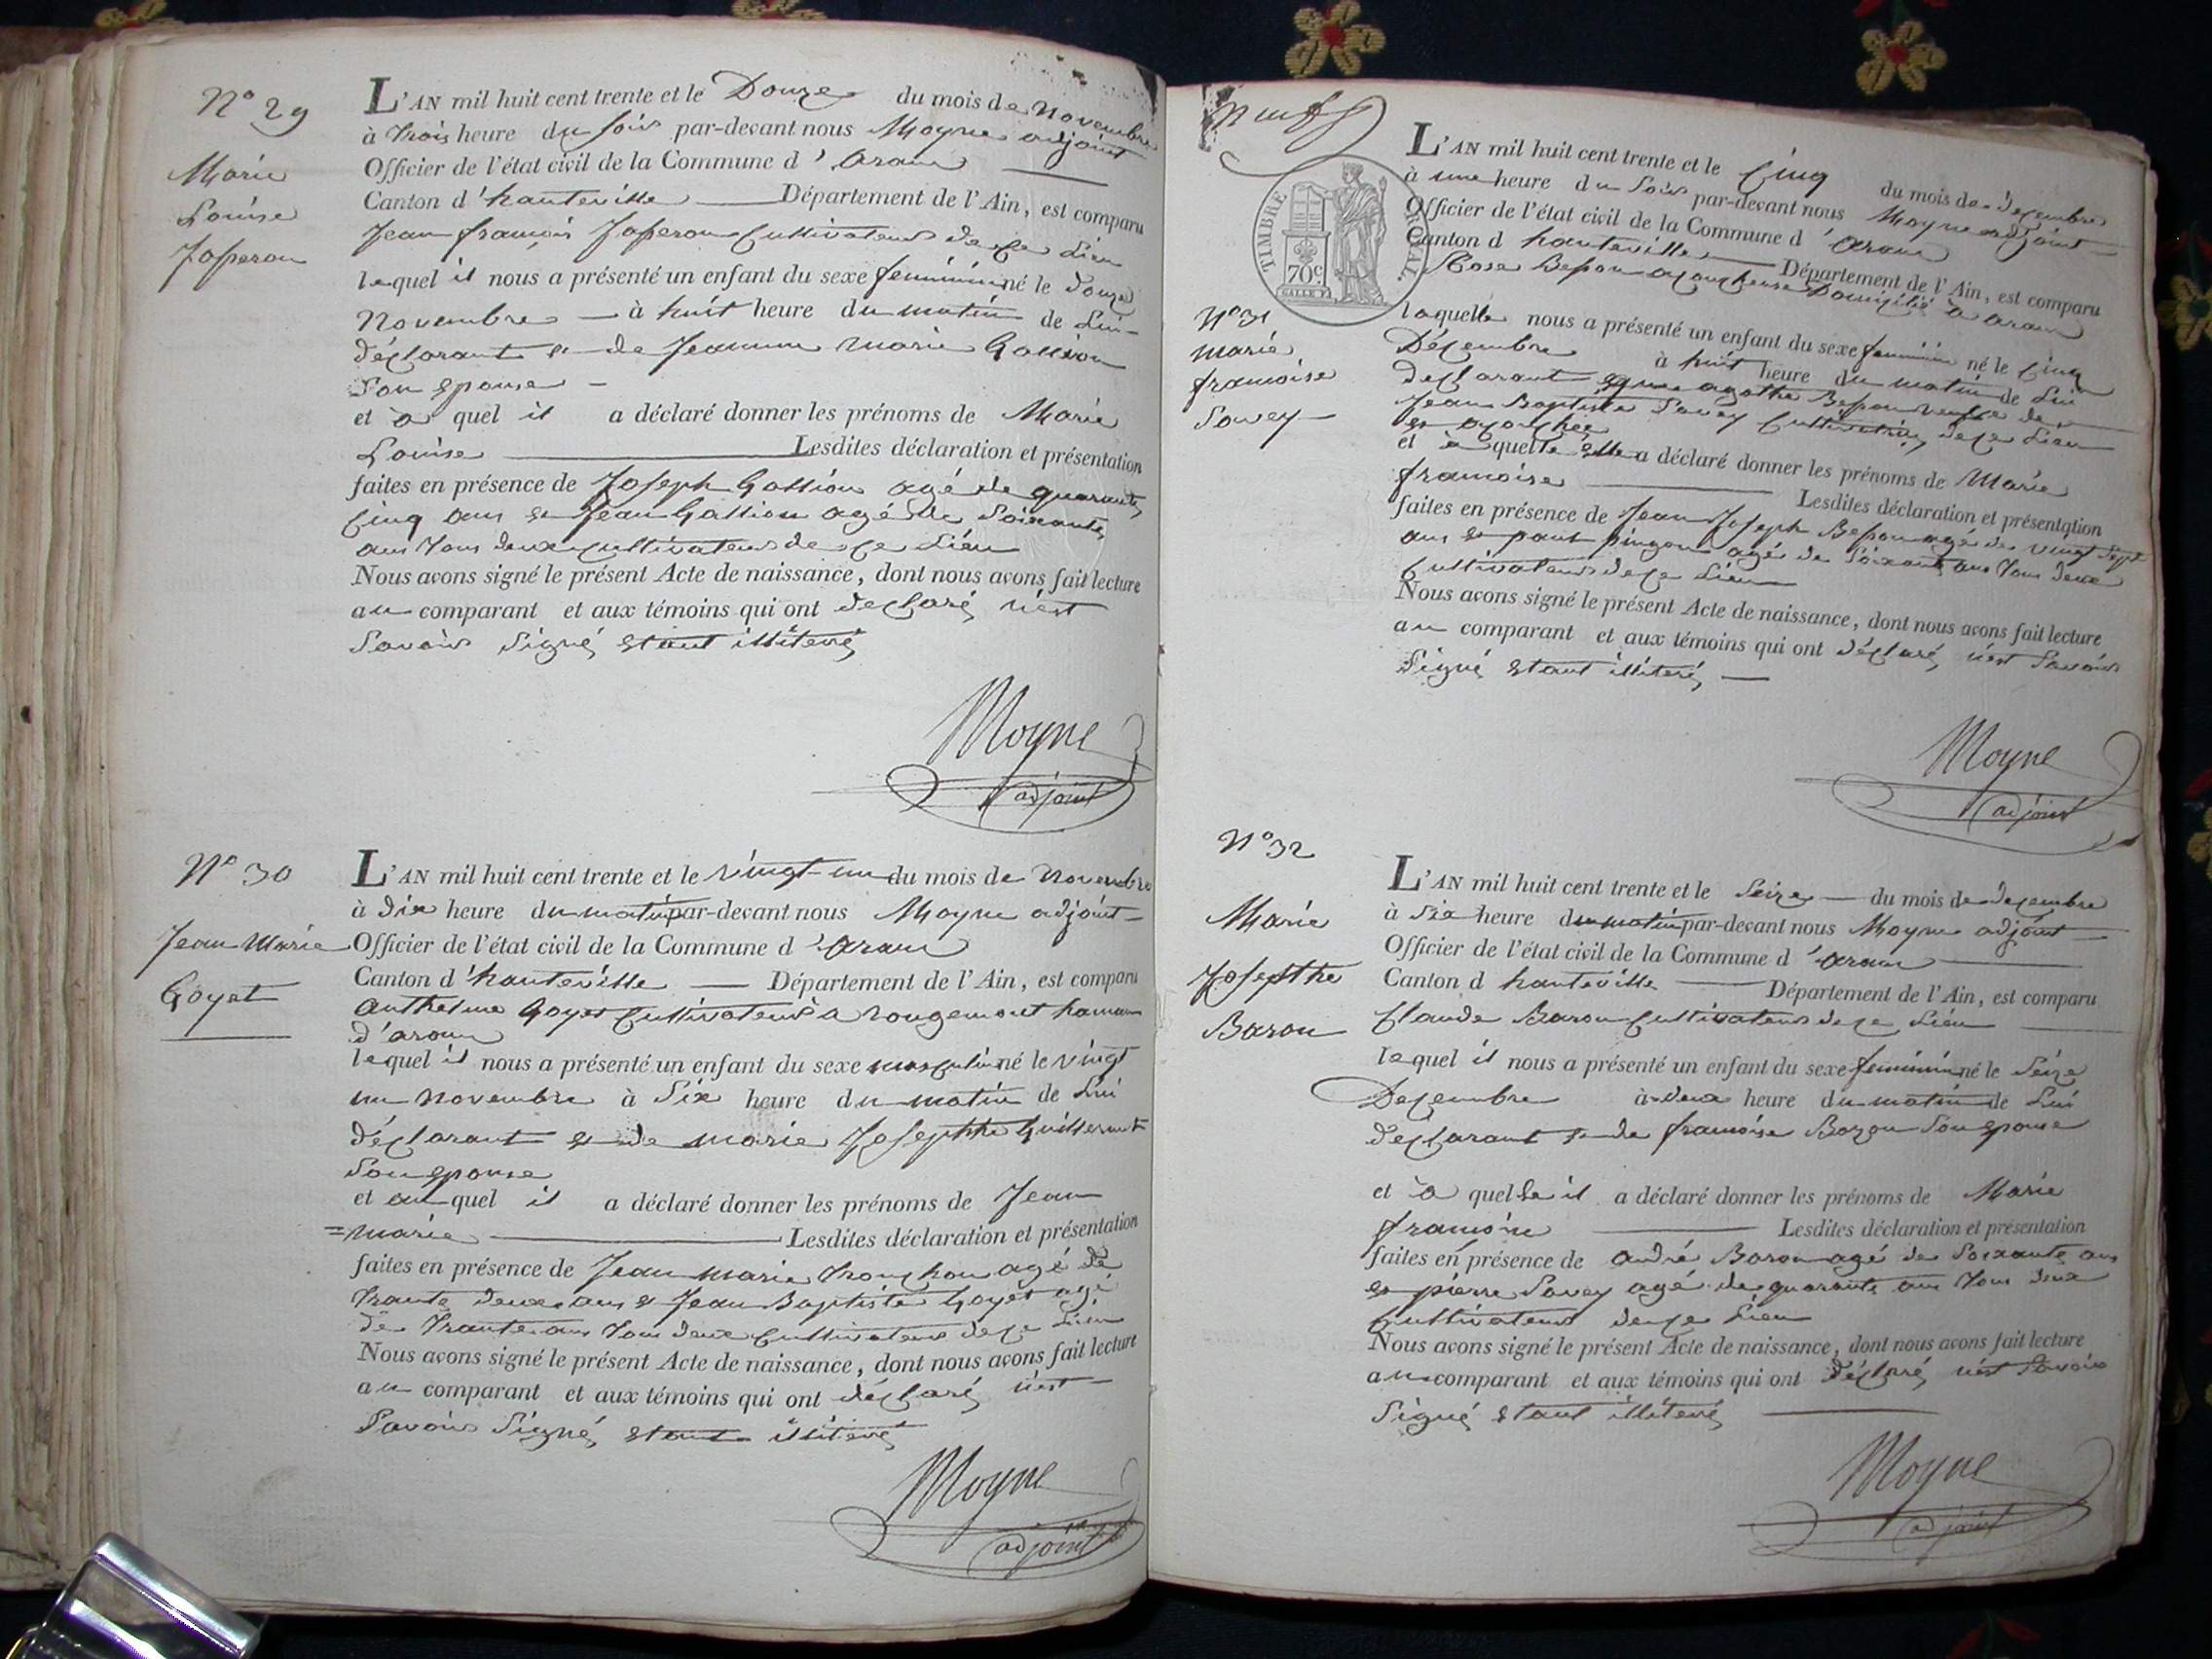 N° 29
Marie
Louise
Josserou
L'AN mil huit cent trente et le Douze du mois de Novembre
à trois heure du soir par-devant nous Moyne adjoint
Officier de l'état civil de la Commune d'aranc
Canton d'hauteville Département de l'Ain, est comparu
Jean françois Josserou Cultivateur de ce Lieu
lequel il nous a présenté un enfant du sexe feminin né le Douze
Novembre à huit heure du matin de Lui
déclarant et de Jeanne Marie
Son epouse
et à quel il a déclaré donner les prénoms de Marie
Louise Lesdites déclaration et présentation
faites en présence de Joseph agé de quarante
Cinq ans et Jean agé de Soixante
ans tous deux cultivateur de ce Lieu
Nous avons signé le présent Acte de naissance, dont nous avons fait lecture
au comparant et aux témoins qui ont declaré n'est
Savoir Signé etant illiteré
Moyne
adjoint
N° 30
Jean Marie
Goyet
L'AN mil huit cent trente et le vingt-un du mois de Novembre
à dix heure du matin par-devant nous Moyne adjoint
Officier de l'état civil de la Commune d'aranc
Canton d'hauteville Département de l'Ain, est comparu
anthelme Goyet Cultivateur à rougemont hamau
d'aranc
lequel il nous a présenté un enfant du sexe masculin né le vingt
un novembre à Six heure du matin de Lui
déclarant et de marie Josephte Guillermet
Son epouse
et au quel il a déclaré donner les prénoms de Jean
=marie Lesdites déclaration et présentation
faites en présence de Jean marie tronchon agé de
trante deux ans et Jean Baptiste Goyet agé
de trante ans tous deux Cultivateur de ce Lieu
Nous avons signé le présent Acte de naissance, dont nous avons fait lecture
au comparant et aux témoins qui ont déclaré n'est
Savoir Signé etant illiteré
Moyne
adjoint
neuf
TIMBRE ROYAL
70c
N° 31
marie
francoise
Savey
L'AN mil huit cent trente et le Cinq du mois de decembre
à une heure du Soir par-devant nous Moyne adjoint
Officier de l'état civil de la Commune d'aranc
Canton d hauteville Département de l'Ain, est comparu
Rose Besson acoucheuse Domicilié à aranc
laquelle nous a présenté un enfant du sexe feminin né le Cinq
Décembre à huit heure du matin de Lui
declarant que agathe Besson veuve de
Jean Baptiste Savey Cultivatrice de ce Lieu
et acouchée
et à quelle elle a déclaré donner les prénoms de Marie
francoise Lesdites déclaration et présentation
faites en présence de Jean Joseph Besson agé de vingt sept
ans et paul pingon agé de Soixante ans tous deux
Cultivateur de ce Lieu
Nous avons signé le présent Acte de naissance, dont nous avons fait lecture
au comparant et aux témoins qui ont déclaré n'est Savoir
Signé etant illiteré
Moyne
adjoint
N° 32
Marie
Josephte
Baron
L'AN mil huit cent trente et le Seize du mois de decembre
à Six heure du matin par-devant nous Moyne adjoint
Officier de l'état civil de la Commune d'aranc
Canton d hauteville Département de l'Ain, est comparu
Claude Baron Cultivateur de ce Lieu
lequel il nous a présenté un enfant du sexe feminin né le Seize
Decembre à deux heure du matin de Lui
declarant et de francoise Bozon Son epouse
et à quelle il a déclaré donner les prénoms de Marie
francoise Lesdites déclaration et présentation
faites en présence de andré Baron agé de Soixante ans
et pierre Savey agé de quarante ans tous deux
Cultivateur de ce Lieu
Nous avons signé le présent Acte de naissance, dont nous avons fait lecture
au comparant et aux témoins qui ont déclaré n'est Savoir
Signé etant illiteré
Moyne
adjoint